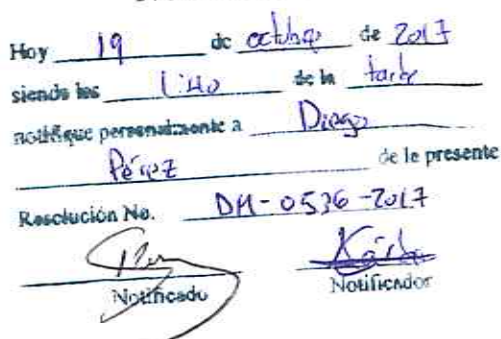 Hoy 19 de octubre de 2017
siendo las 1:40 de la tarde
notifique personalmente a Diego
Pérez de la presente
Resolución No. DM-0536-2017
Notificado Notificador